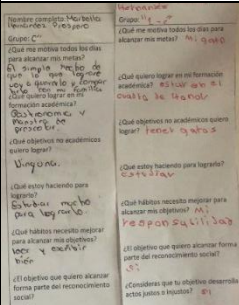 Nombre completo Maribella
Hernandez Prospero
Grupo: C"
¿Qué me motiva todos los días
para alcanzar mis metas?
El simple hecho de
que lo que lograre
voy a
¿Qué quiero lograr en mi
formación académica?
Gastronomía y
Maestra de
preescolar.
¿Qué objetivos no académicos
quiero lograr?
Ninguno.
¿Qué estoy haciendo para
lograrlo?
Estudiar mucho
para lograrlo
¿Qué hábitos necesito mejorar
para alcanzar mis objetivos?
Leer y escribir
bien
¿El objetivo que quiero alcanzar
forma parte del reconocimiento
social?
Hernandez
Grupo: "1-c"
¿Qué me motiva todos los días para
alcanzar mis metas? Mi gato
¿Qué quiero lograr en mi formación
académica? estar en el
cuadro de Honor
¿Qué objetivos no académicos quiero
lograr? tener gatos
¿Qué estoy haciendo para lograrlo?
estudiar
¿Qué hábitos necesito mejorar para
alcanzar mis objetivos? Mi
responsabilidad
¿El objetivo que quiero alcanzar forma
parte del reconocimiento social?
si
¿Consideras que tu objetivo desarrolla
actos justos o injustos? si